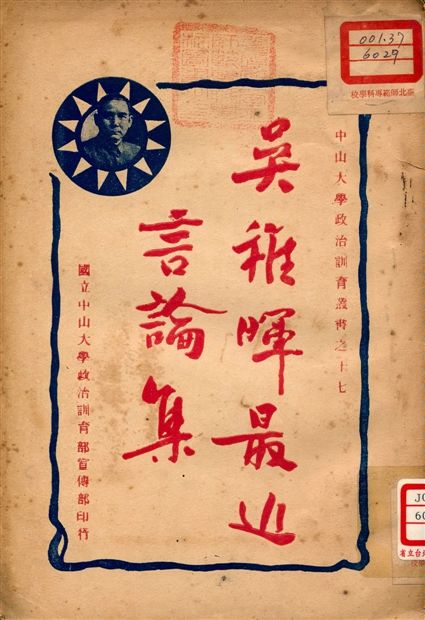 中山大學政治訓育叢書之十七
吳稚暉最近
言論集
國立中山大學政治訓育部宣傳部印行
001.37
6029
臺北師範專科學校
JO
60